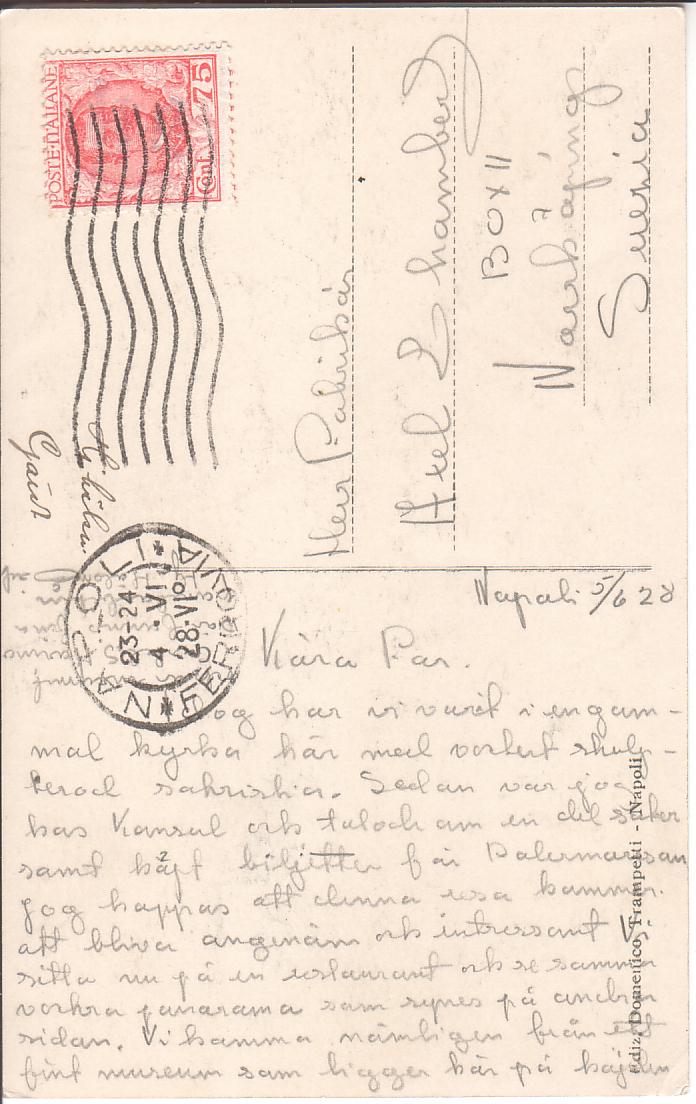 POSTE ITALIANE
Cent. 75
NAPOLI FERROVIA
23-24
4 VI
28 VI
Herr Fabrikör
Axel Swamberg
BOX 11
Norrköping
Suezia
Napoli 5/6 28
Kära Far.
har vi varit i en gam-
mal kyrka här med vackert skulp-
terad sakristia. Sedan var jag
hos Konsul och talade om en del saker
samt köpt biljetter för Palermoresan
jag hoppas att denna resa kommer
att bliva angenäm och intressant Vi
sitta nu på en restaurant och se samma
vackra panorama som synes på andra
sidan. Vi komma nämligen från ett
fint museum som ligger här på höjden
Ediz. Domenico Trampetti - Napoli